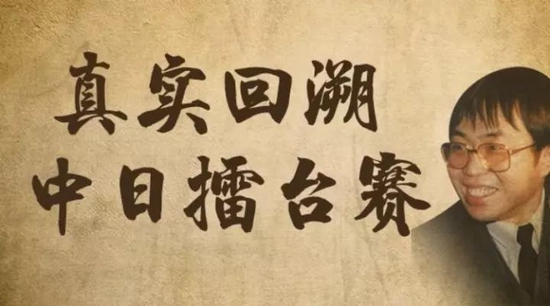 真实回溯
中日擂台赛